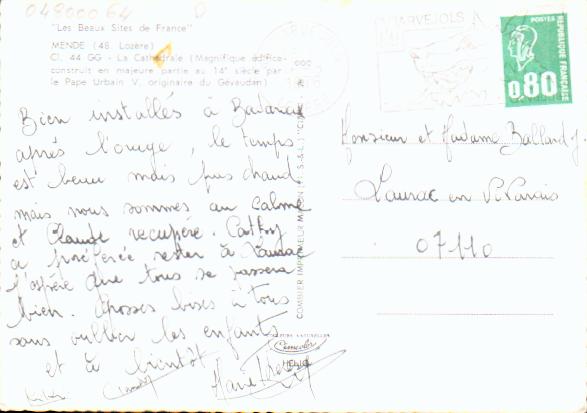 04800064
"Les Beaux Sites de France"
MENDE (48. Lozère)
Cl. 44 GG - La Cathédrale (Magnifique édifice
construit en majeure partie au 14e siècle par
le Pape Urbain V, originaire du Gévaudan)
MARVEJOLS
POSTES
REPUBLIQUE FRANÇAISE
0.80
Bien installés à
après l'orage, le temps
est beau mais pas chaud
mais nous sommes au calme
et Claude recupère. Cathy
a préférée rester à Laurac
J'espère que tous se passera
bien. Grosses bises à tous
sans oublier les enfants
et à bientôt
Monsieur et Madame Balland J.
Laurac en Vivarais
07110
COMBIER IMPRIMEUR MACON
COULEURS NATURELLES
Cimcolor